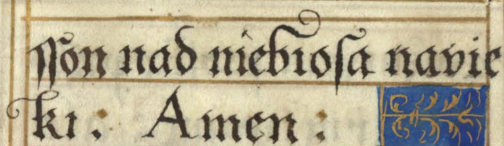 ſſon nad niebioſa navie
ki: Amen: